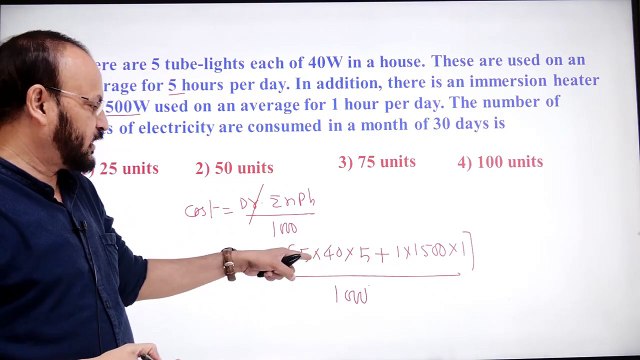 ere are 5 tube-lights each of 40W in a house. These are used on an
rage for 5 hours per day. In addition, there is an immersion heater
500W used on an average for 1 hour per day. The number of
s of electricity are consumed in a month of 30 days is
) 25 units 2) 50 units 3) 75 units 4) 100 units
cost = DY Σ nPh
1000
[5×40×5 + 1×1500×1]
1000